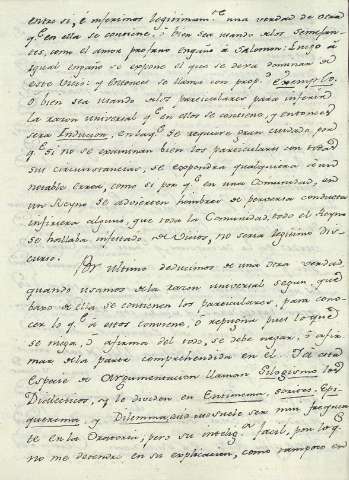 entre si, é inferimos legitimam.te una verdad de otra
q.e en ella se contiene; ó bien sea usando de los Semejan-
tes, como el amor profano engañó a Salomon: Luego á
igual engaño se expone el que se dexa dominar de
este vicio: y entonces se llama con prop.d Exemplo.
O bien sea usando de los particulares para inferir
la razon universal q.e en ellos se contiene, y entonces
será Induccion, en la q.e se requiere gran cuidado, por
q.e si no se examinan bien los particulares con todas
sus circunstancias, se expondrá qualquiera á un
notable error, como si por q.e en una Comunidad, en
un Reyno se advierten hombres de perversa conducta
infiriera alguno, que toda la Comunidad, todo el Reyno
se hallaba infectado de vicios, no seria legitimo dis-
curso.
Por ultimo deducimos de una otra verdad,
quando usamos de la razon universal segun que
baxo de ella se contienen los particulares, para cono-
cer lo q.e a estos conviene, ó repugna pues lo que
se niega, ó afirma del todo, se debe negar, ó afir-
mar de la parte comprehendida en él. A esta
Especie de Argumentacion llaman Silogismo los
Dialecticos, y le dividen en Entimema, Sorites, Epi-
querema, y Dilemma, no suele ser muy frequen-
te en la Oratoria, pero su intelig.a facil, por lo q.e
no me detendré en su explicacion, como tampoco en